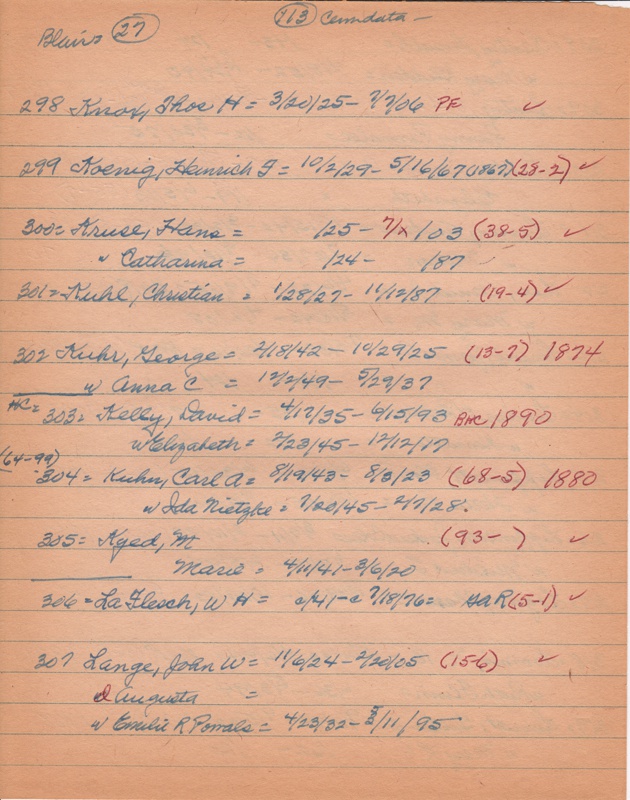 Blair= 27 113 Cemdata —
298 Knox, Thos H = 3/20/25 — 7/7/06 PF ✓
299 Koenig, Heinrich F = 10/2/29 — 5/16/67 (1867) (28-2) ✓
300= Kruse, Hans = /25 — 7/x /03 (38-5) ✓
w Catharina = /24 — /87
301= Kuhl, Christian = 1/28/27 — 11/12/87 (19-4) ✓
302 Kuhr, George = 2/18/42 — 10/29/25 (13-7) 1874
w Anna C = 12/2/49 — 5/29/37
HC= 303= Kelly, David = 4/17/35 — 6/15/93 BHC 1890
w Elizabeth = 2/23/45 — 12/12/17
(64-99) 304= Kuhn, Carl A = 8/19/43 — 8/3/23 (68-5) 1880
w Ida Nietzke = 7/20/45 — 2/7/28.
305= Kyed, M (93- ) ✓
Marie = 4/11/41 — 3/6/20
306= LaFlesch, W H = c/41 — c 7/18/76= (5-1) ✓
307 Lange, John W = 11/6/24 — 2/20/05 (15-6) ✓
d Augusta =
w Emilie R = 4/23/32 — /11/95